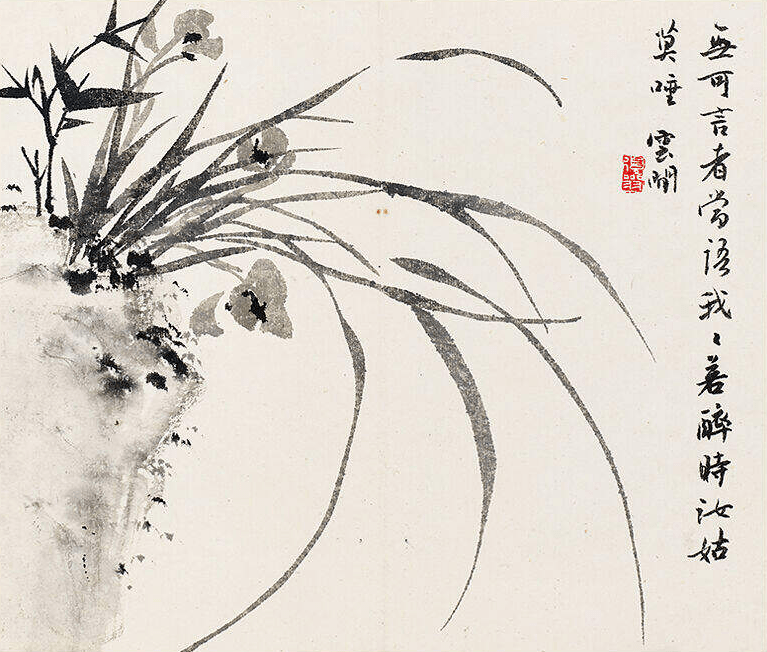 無可言者當語我〻若醉時汝姑
莫睡 雲間